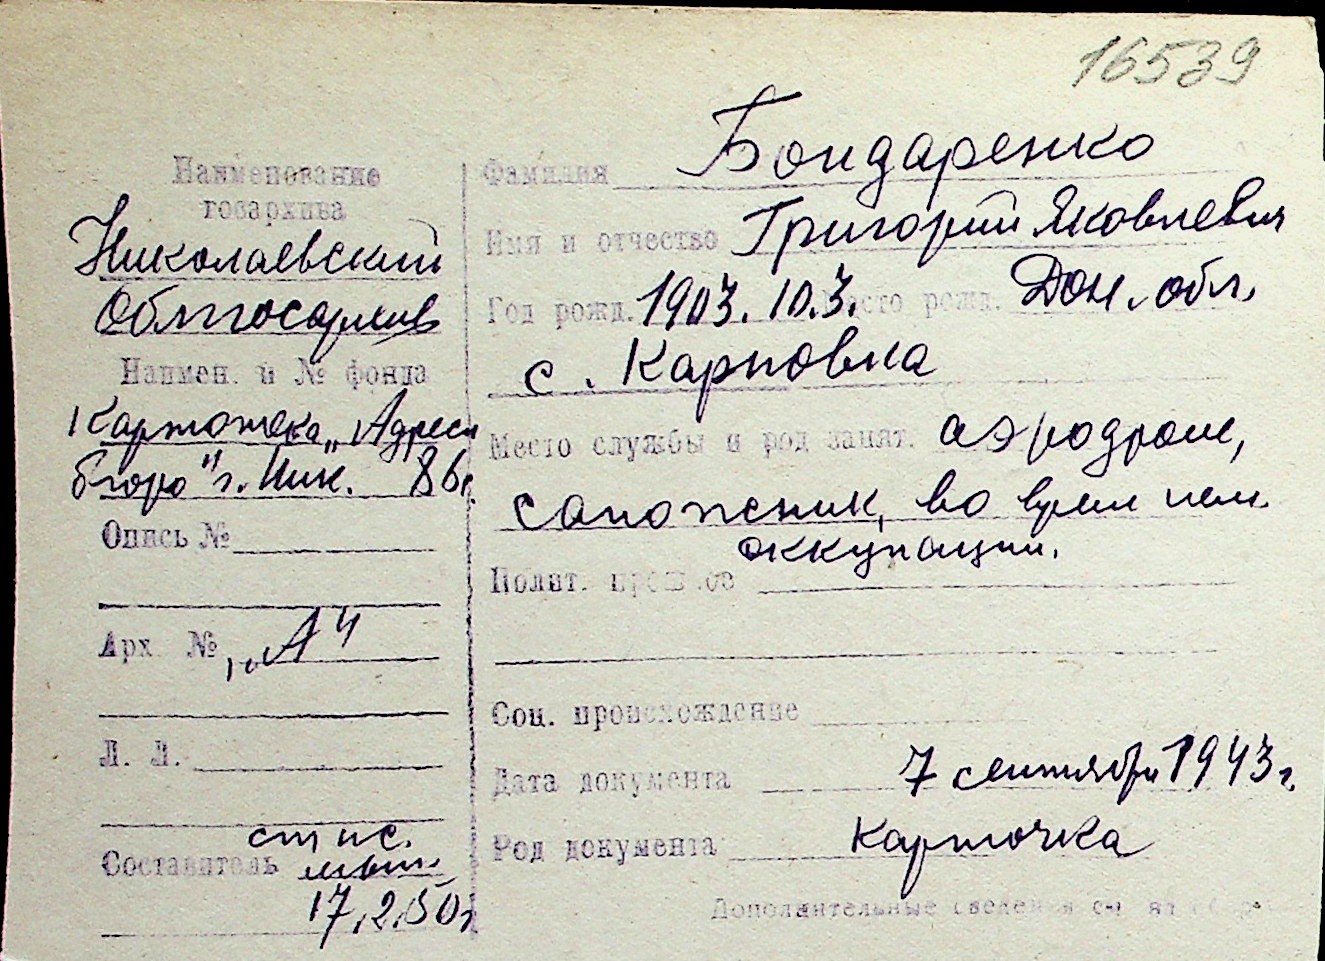 16539
Наименование
госархива
Николаевский
Облгосархив
Наимен. и № фонда
Картотека „Адресн
бюро" г. Ник. 86г.
Опись №
Арх №
„А"
Л. Л.
Составитель
17.2.50г
Фамилия Бондаренко
Имя и отчество Григорий Яковлевич
Год рожд. 1903. 10.3. Место рожд. Дон. обл.
с. Карповка
Место службы и род занят. аэродром,
сапожник, во врем нем.
оккупации.
Полит. прошлое
Соц. происхождение
Дата документа 7 сентября 1943г.
Род документа карточка
Дополнительные сведения см на